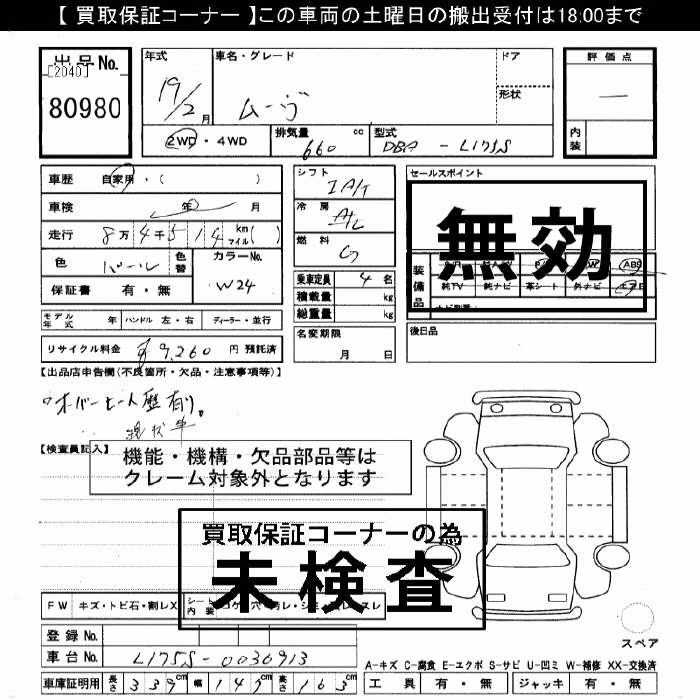 【 買取保証コーナー 】この車両の土曜日の搬出受付は18:00まで
出品No.
[2040]
80980
年式 車名・グレード ドア
19/2月 ムーヴ 形状
2WD・4WD 排気量 660 cc 型式 DBA - L175S
評価点
—
内装
車歴 自家用・( )
車検 年 月
走行 8万4千514 km マイル( )
色 パール 色替 カラーNo. W24
保証書 有・無
シフト IA/T
冷房 A/C
燃料 G
乗車定員 4名
積載量 kg
総重量 kg
セールスポイント
無効
装備品 ABS
純TV 純ナビ 革シート 外ナビ エアB
モデル年式 年 ハンドル 左・右 ディーラー・並行
名変期限 月 日
後日品
リサイクル料金 ¥9,260 円 預託済
【出品店申告欄(不良箇所・欠品・注意事項等)】
オーバーヒート歴有り。
現状車
【検査員記入】
機能・機構・欠品部品等は
クレーム対象外となります
買取保証コーナーの為
未検査
FW キズ・トビ石・割レX シート内装
スペア
登録No.
車台No. L175S-0036913
A-キズ C-腐食 E-エクボ S-サビ U-凹ミ W-補修 XX-交換済
車庫証明用 長さ 339cm 幅 147cm 高さ 163cm 工具 有・無 ジャッキ 有・無